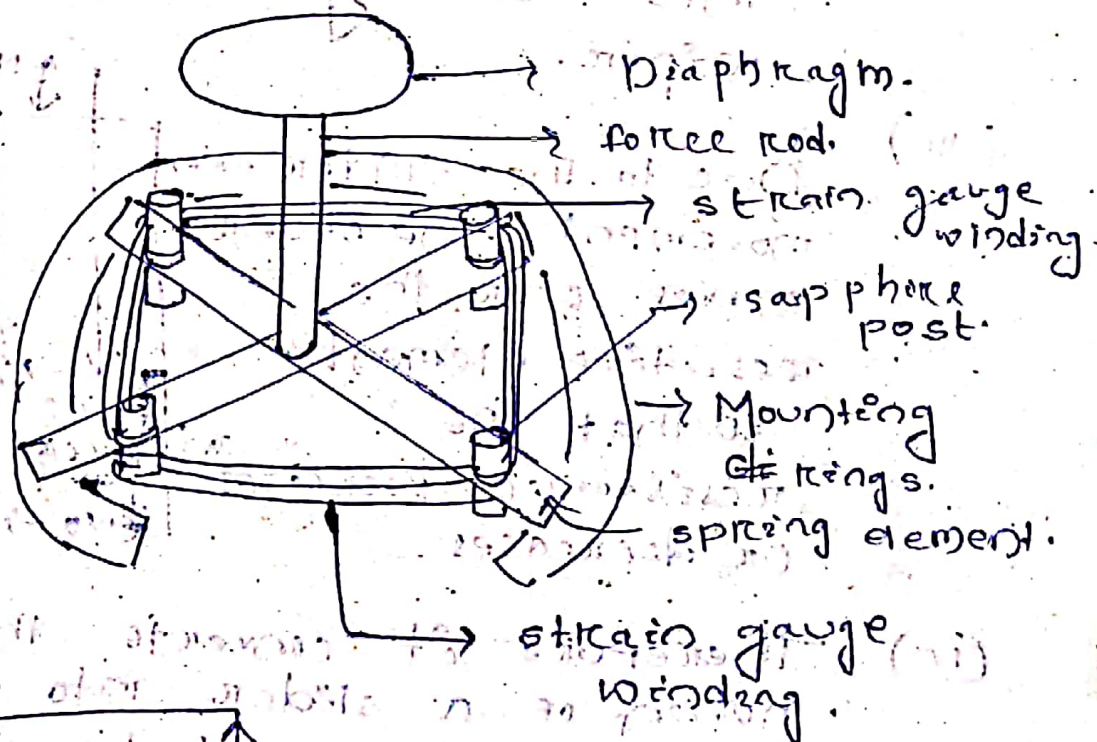 Diaphragm.
force rod.
strain gauge
winding.
sapphire
post.
Mounting
rings.
spring element.
strain gauge
winding.